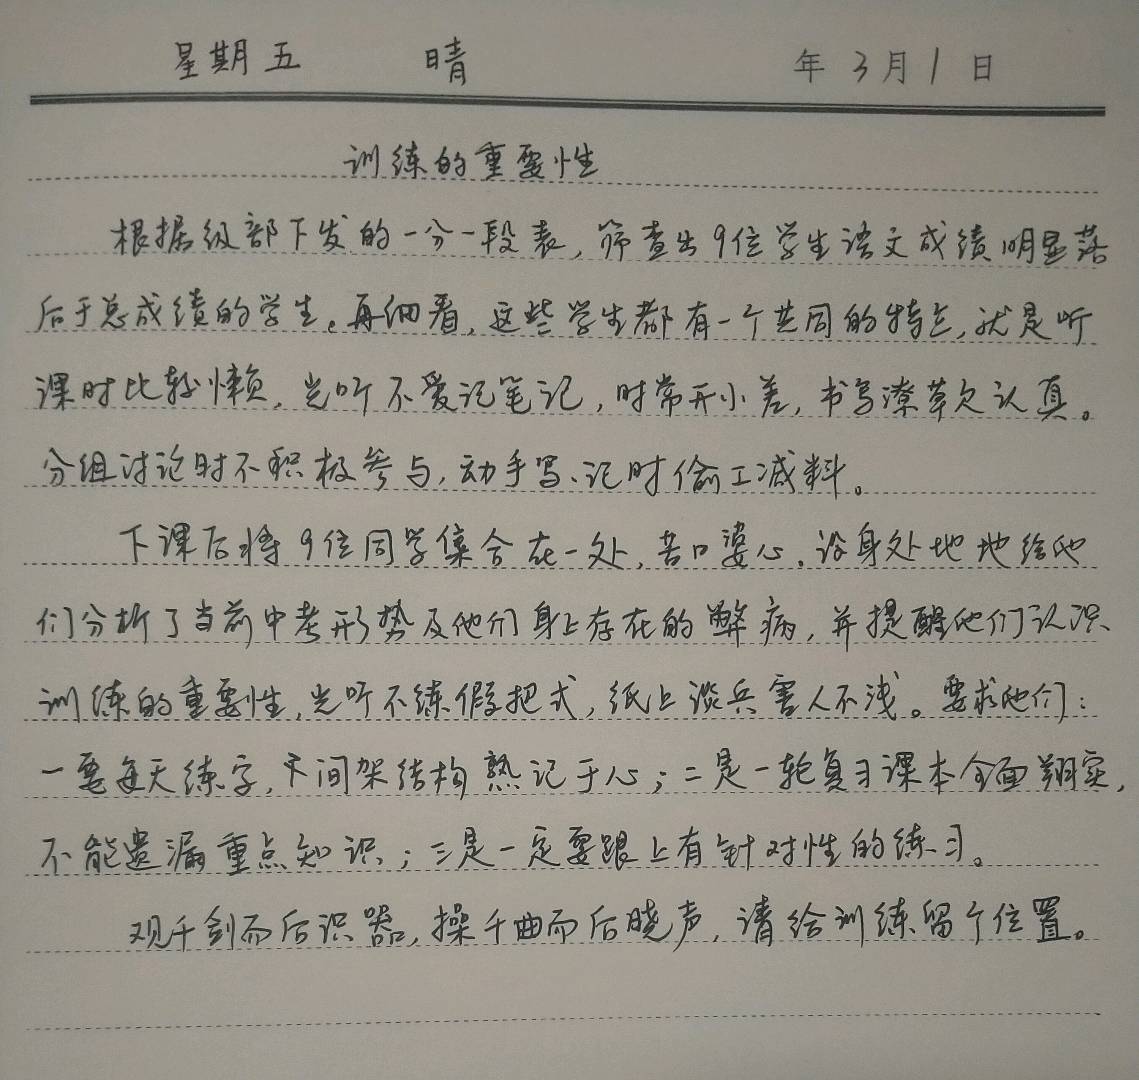 星期五 晴 年3月1日
训练的重要性
根据级部下发的一分一段表,筛查出9位学生语文成绩明显落
后于总成绩的学生。再细看,这些学生都有一个共同的特点,就是听
课时比较懒,光听不爱记笔记,时常开小差,书写潦草欠认真。
分组讨论时不积极参与,动手写、记时偷工减料。
下课后将9位同学集合在一处,苦口婆心、设身处地地给他
们分析了当前中考形势及他们身上存在的弊病,并提醒他们认识
训练的重要性,光听不练假把式,纸上谈兵害人不浅。要求他们:
一要每天练字,间架结构熟记于心;二是一轮复习课本全面翔实,
不能遗漏重点知识;三是一定要跟上有针对性的练习。
观千剑而后识器,操千曲而后晓声,请给训练留个位置。